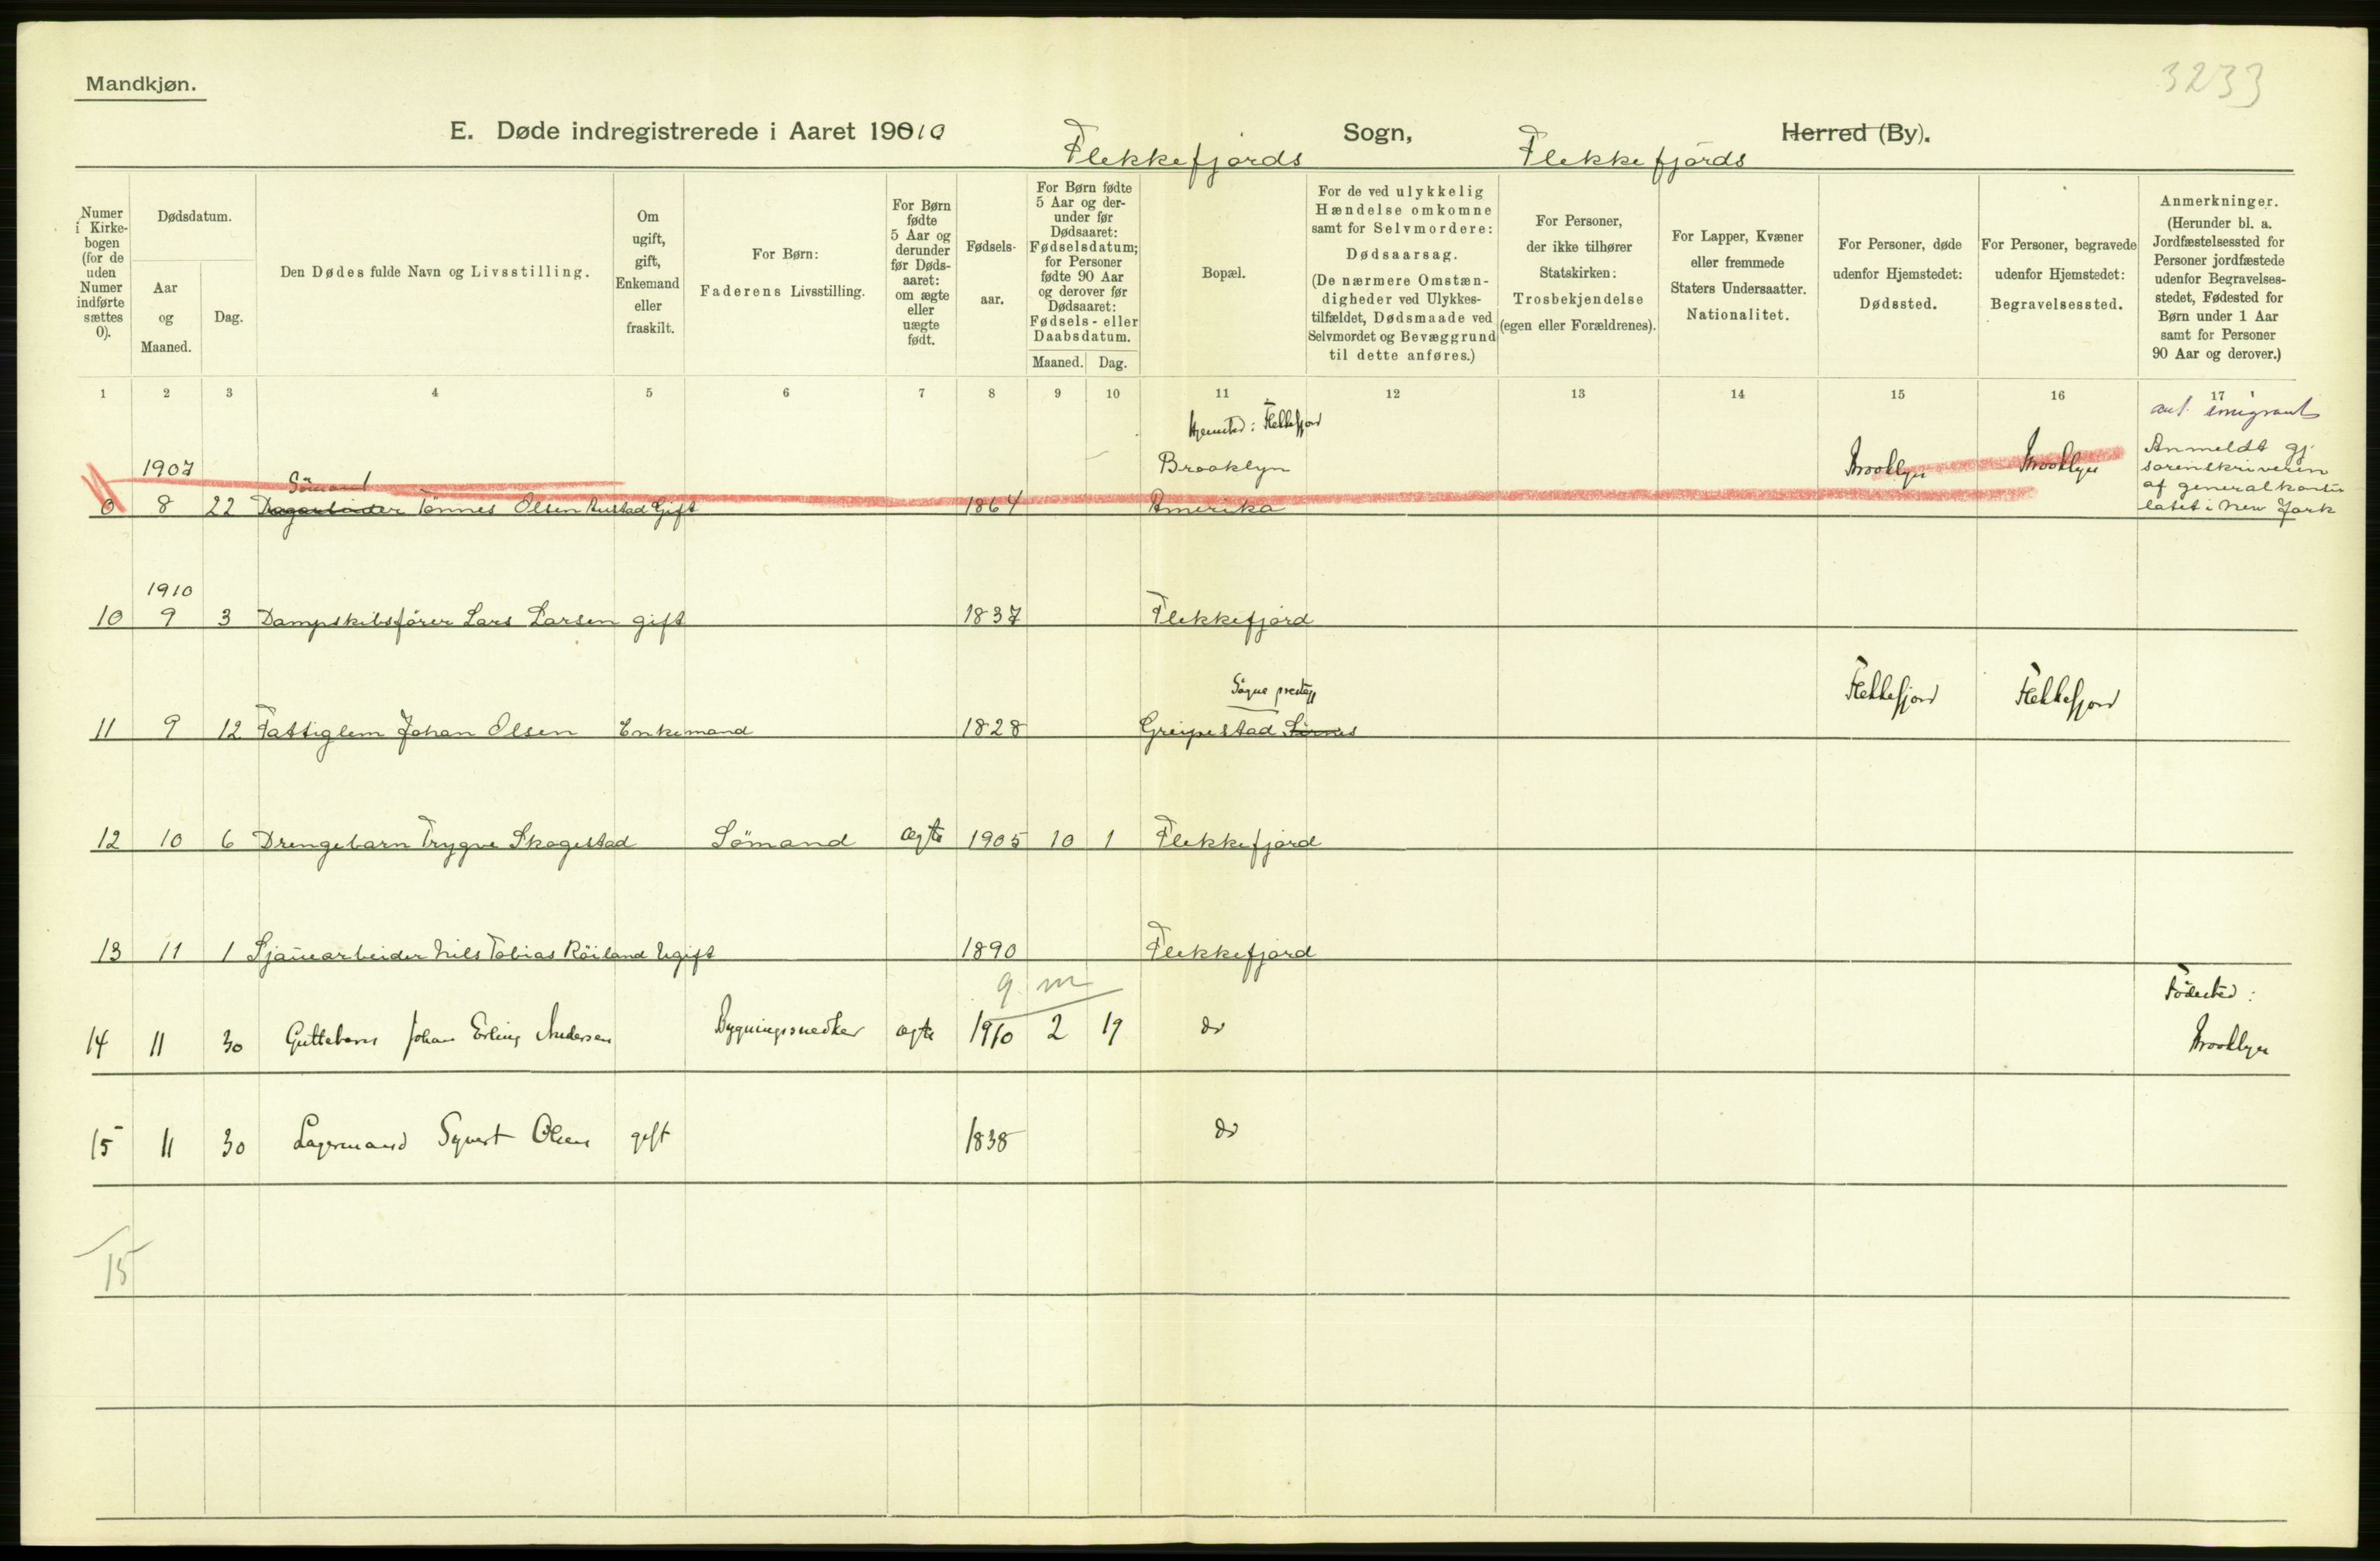 Mandkjøn.
3233
E. Døde indregistrerede i Aaret 1910 Flekkefjords Sogn, Flekkefjords Herred (By).
Numer i Kirkebogen (for de uden Numer indførte sættes 0).
Dødsdatum.
Aar og Maaned.
Dag.
Den Dødes fulde Navn og Livsstilling.
Om ugift, gift, Enkemand eller fraskilt.
For Børn: Faderens Livsstilling.
For Børn fødte 5 Aar og derunder før Dødsaaret: om ægte eller uægte født.
Fødselsaar.
For Børn fødte 5 Aar og derunder før Dødsaaret: Fødselsdatum; for Personer fødte 90 Aar og derover før Dødsaaret: Fødsels- eller Daabsdatum.
Maaned. Dag.
Bopæl.
For de ved ulykkelig Hændelse omkomne samt for Selvmordere: Dødsaarsag. (De nærmere Omstændigheder ved Ulykkestilfældet, Dødsmaade ved Selvmordet og Bevæggrund til dette anføres.)
For Personer, der ikke tilhører Statskirken: Trosbekjendelse (egen eller Forældrenes).
For Lapper, Kvæner eller fremmede Staters Undersaatter. Nationalitet.
For Personer, døde udenfor Hjemstedet: Dødssted.
For Personer, begravede udenfor Hjemstedet: Begravelsessted.
Anmerkninger. (Herunder bl. a. Jordfæstelsessted for Personer jordfæstede udenfor Begravelsesstedet, Fødested for Børn under 1 Aar samt for Personer 90 Aar og derover.)
1 2 3 4 5 6 7 8 9 10 11 12 13 14 15 16 17
Hjemsted: Flekkefjord
ant. emigrant
1907 Sömand Brooklyn Brooklyn Brooklyn
0 8 22 Dagarbeider Tönnes Olsen Austad Gift 1864 Amerika
Anmeldt gj.
sorenskriveren
af generalkonsu
latet i New York
1910
10 9 3 Dampskibsförer Lars Larsen gift 1837 Flekkefjord
Sögne prestegj
11 9 12 Fattiglem Johan Olsen Enkemand 1828 Greipestad Flekkefjord Flekkefjord
12 10 6 Drengebarn Trygve Skogestad Sömand ægte 1905 10 1 Flekkefjord
13 11 1 Sjauearbeider Nils Tobias Röiland Ugift 1890 Flekkefjord
9 m
14 11 30 Guttebarn Johan Erling Andersen Bygningssnedker ægte 1910 2 19 do Födested:
Brooklyn
15 11 30 Lagermand Syvert Olsen gift 1838 do
15